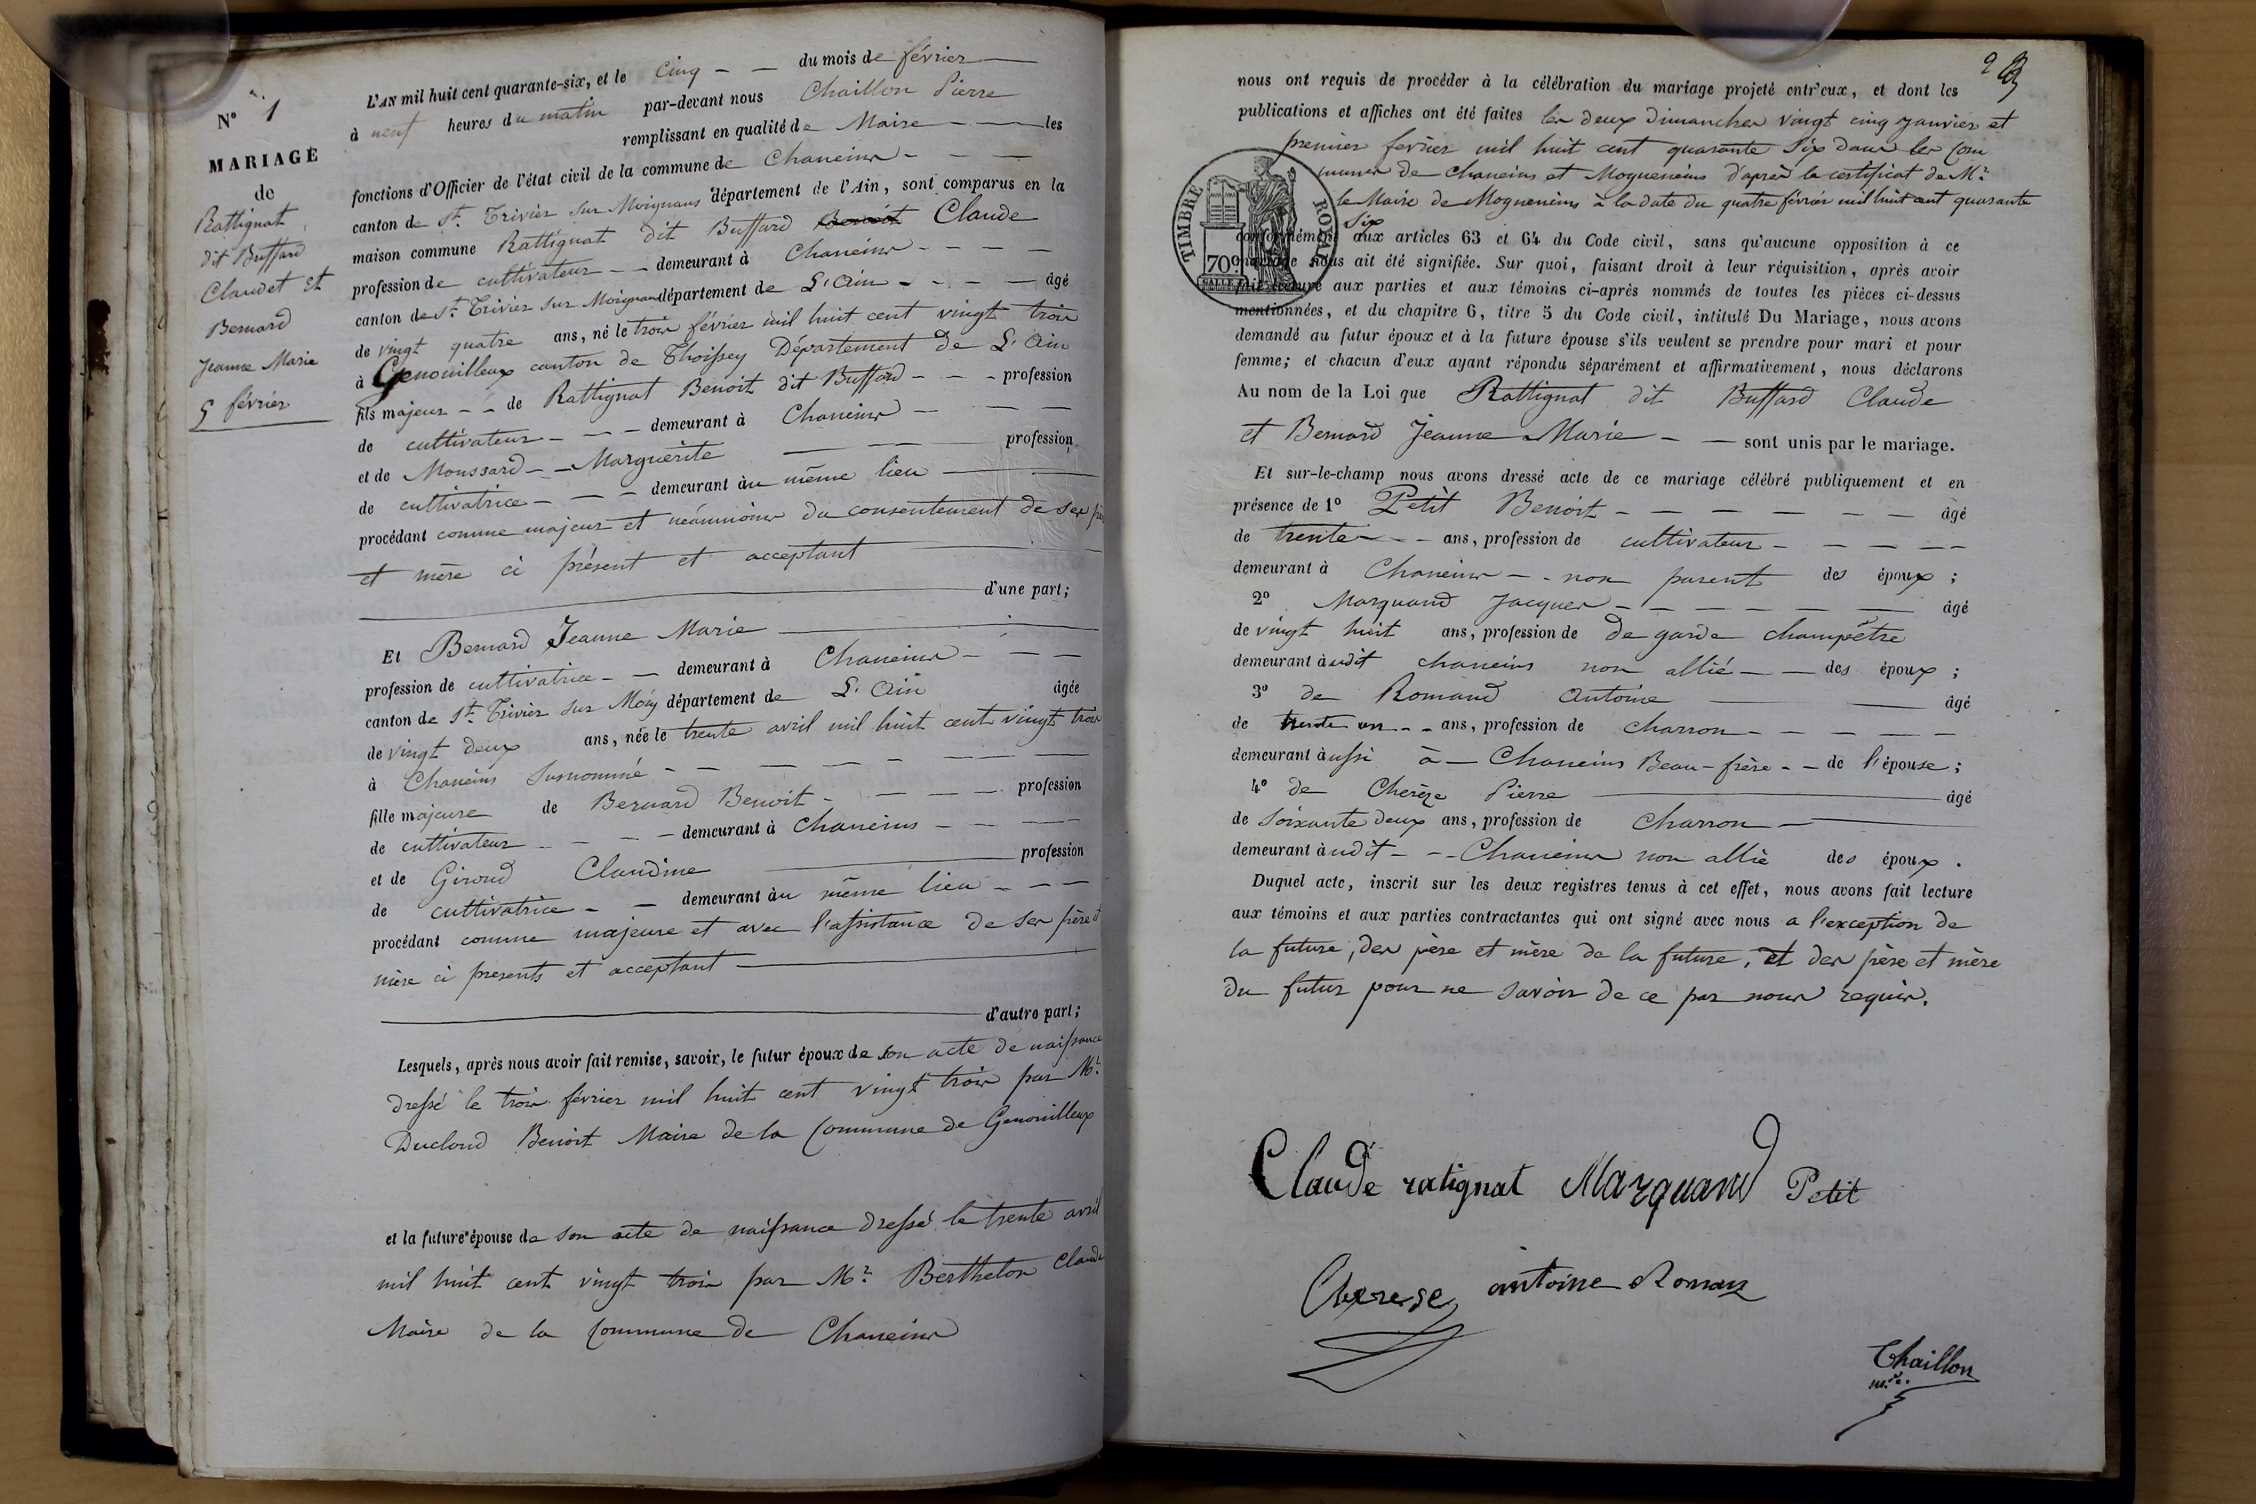 N° 1
MARIAGE
de
Rattignat
dit Buffard
Claudet et
Bernard
Jeanne Marie
5 février
L'AN mil huit cent quarante-six, et le cinq du mois de février
à neuf heures du matin par-devant nous Chaillon Pierre
remplissant en qualité de Maire les
fonctions d'Officier de l'état civil de la commune de Chaneins
canton de St. Trivier sur Moignans département de l'Ain, sont comparus en la
maison commune Rattignat dit Buffard Benoit Claude
profession de cultivateur demeurant à Chaneins
canton de St. Trivier sur Moignans département de L'Ain âgé
de vingt quatre ans, né le trois février mil huit cent vingt trois
à Genouilleux canton de Thoissey Département de L'Ain
fils majeur de Rattignat Benoit dit Buffard profession
de cultivateur demeurant à Chaneins
et de Moussard Marguerite profession
de cultivatrice demeurant àu même lieu
procédant comme majeur et néanmoins du consentement de ses père
et mère ci présent et acceptant
d'une part;
Et Bernard Jeanne Marie
profession de cultivatrice demeurant à Chaneins
canton de St. Trivier sur Moig département de L'Ain âgée
de vingt deux ans, née le trente avril mil huit cent vingt trois
à Chaneins susnommé
fille majeure de Bernard Benoit profession
de cultivateur demeurant à Chaneins
et de Giroud Claudine profession
de cultivatrice demeurant àu même lieu
procédant comme majeure et avec l'assistance de ses père et
mère ci presents et acceptant
d'autre part;
Lesquels, après nous avoir fait remise, savoir, le futur époux de son acte de naissance
dressé le trois février mil huit cent vingt trois par Mr.
Ducloud Benoit Maire de la Commune de Genouilleux
et la future épouse de son acte de naissance dressé le trente avril
mil huit cent vingt trois par Mr. Bertheton Claude
Maire de la Commune de Chaneins
2
nous ont requis de procéder à la célébration du mariage projeté entr'eux, et dont les
publications et affiches ont été faites les deux Dimanches vingt cinq janvier et
premier février mil huit cent quarante six dans les com
munes de Chaneins et Mogneneins d'après le certificat de Mr.
le Maire de Mogneneins à la date du quatre février mil huit cent quarante
six
TIMBRE ROYAL
70c
conformément aux articles 63 et 64 du Code civil, sans qu'aucune opposition à ce
mariage nous ait été signifiée. Sur quoi, faisant droit à leur réquisition, après avoir
fait lecture aux parties et aux témoins ci-après nommés de toutes les pièces ci-dessus
mentionnées, et du chapitre 6, titre 5 du Code civil, intitulé Du Mariage, nous avons
demandé au futur époux et à la future épouse s'ils veulent se prendre pour mari et pour
femme; et chacun d'eux ayant répondu séparément et affirmativement, nous déclarons
Au nom de la Loi que Rattignat dit Buffard Claude
et Bernard Jeanne Marie sont unis par le mariage.
Et sur-le-champ nous avons dressé acte de ce mariage célébré publiquement et en
présence de 1° Petit Benoit âgé
de trente ans, profession de cultivateur
demeurant à Chaneins non parent des époux;
2° Marquand Jacques âgé
de vingt huit ans, profession de de garde champêtre
demeurant àudit chaneins non allié des époux;
3° de Romand Antoine âgé
de trente un ans, profession de charron
demeurant àussi à Chaneins Beau-frère de l'épouse;
4° de Cherèze Pierre âgé
de soixante deux ans, profession de Charron
demeurant àudit Chaneins non allié des époux.
Duquel acte, inscrit sur les deux registres tenus à cet effet, nous avons fait lecture
aux témoins et aux parties contractantes qui ont signé avec nous a l'exception de
la future, des père et mère de la future, et des père et mère
du futur pour ne savoir de ce par nous requis.
Claude ratignat Marquand Petit
antoine Roman
Chaillon